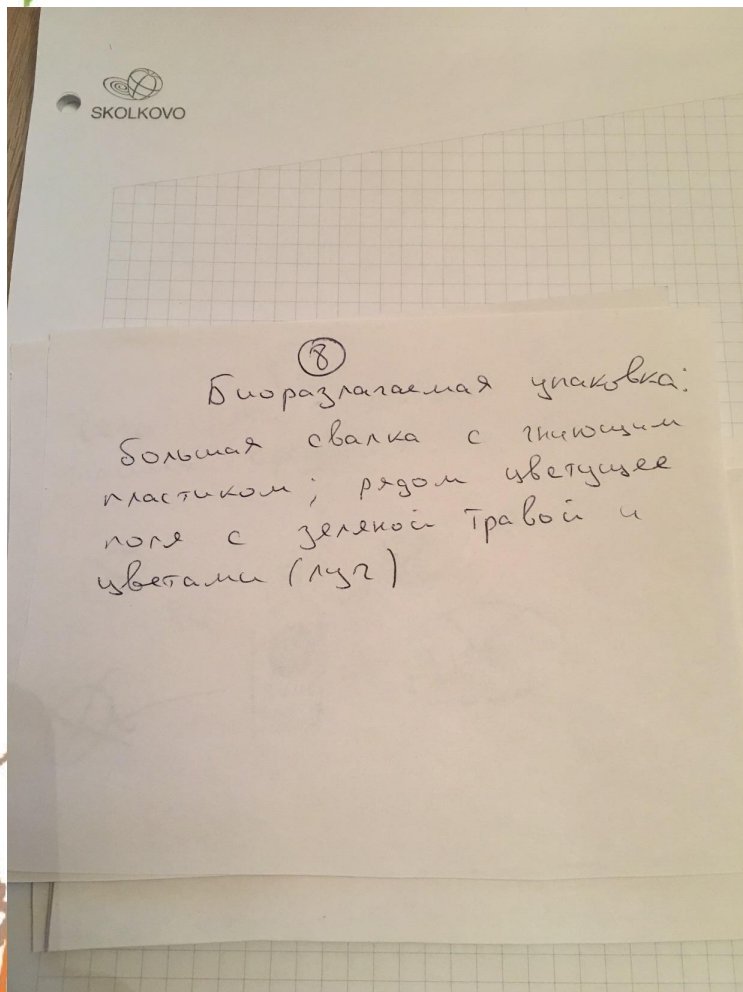 SKOLKOVO
8
Биоразлагаемая упаковка:
большая свалка с гниющим
пластиком; рядом цветущее
поля с зеленой травой и
цветами (луг)